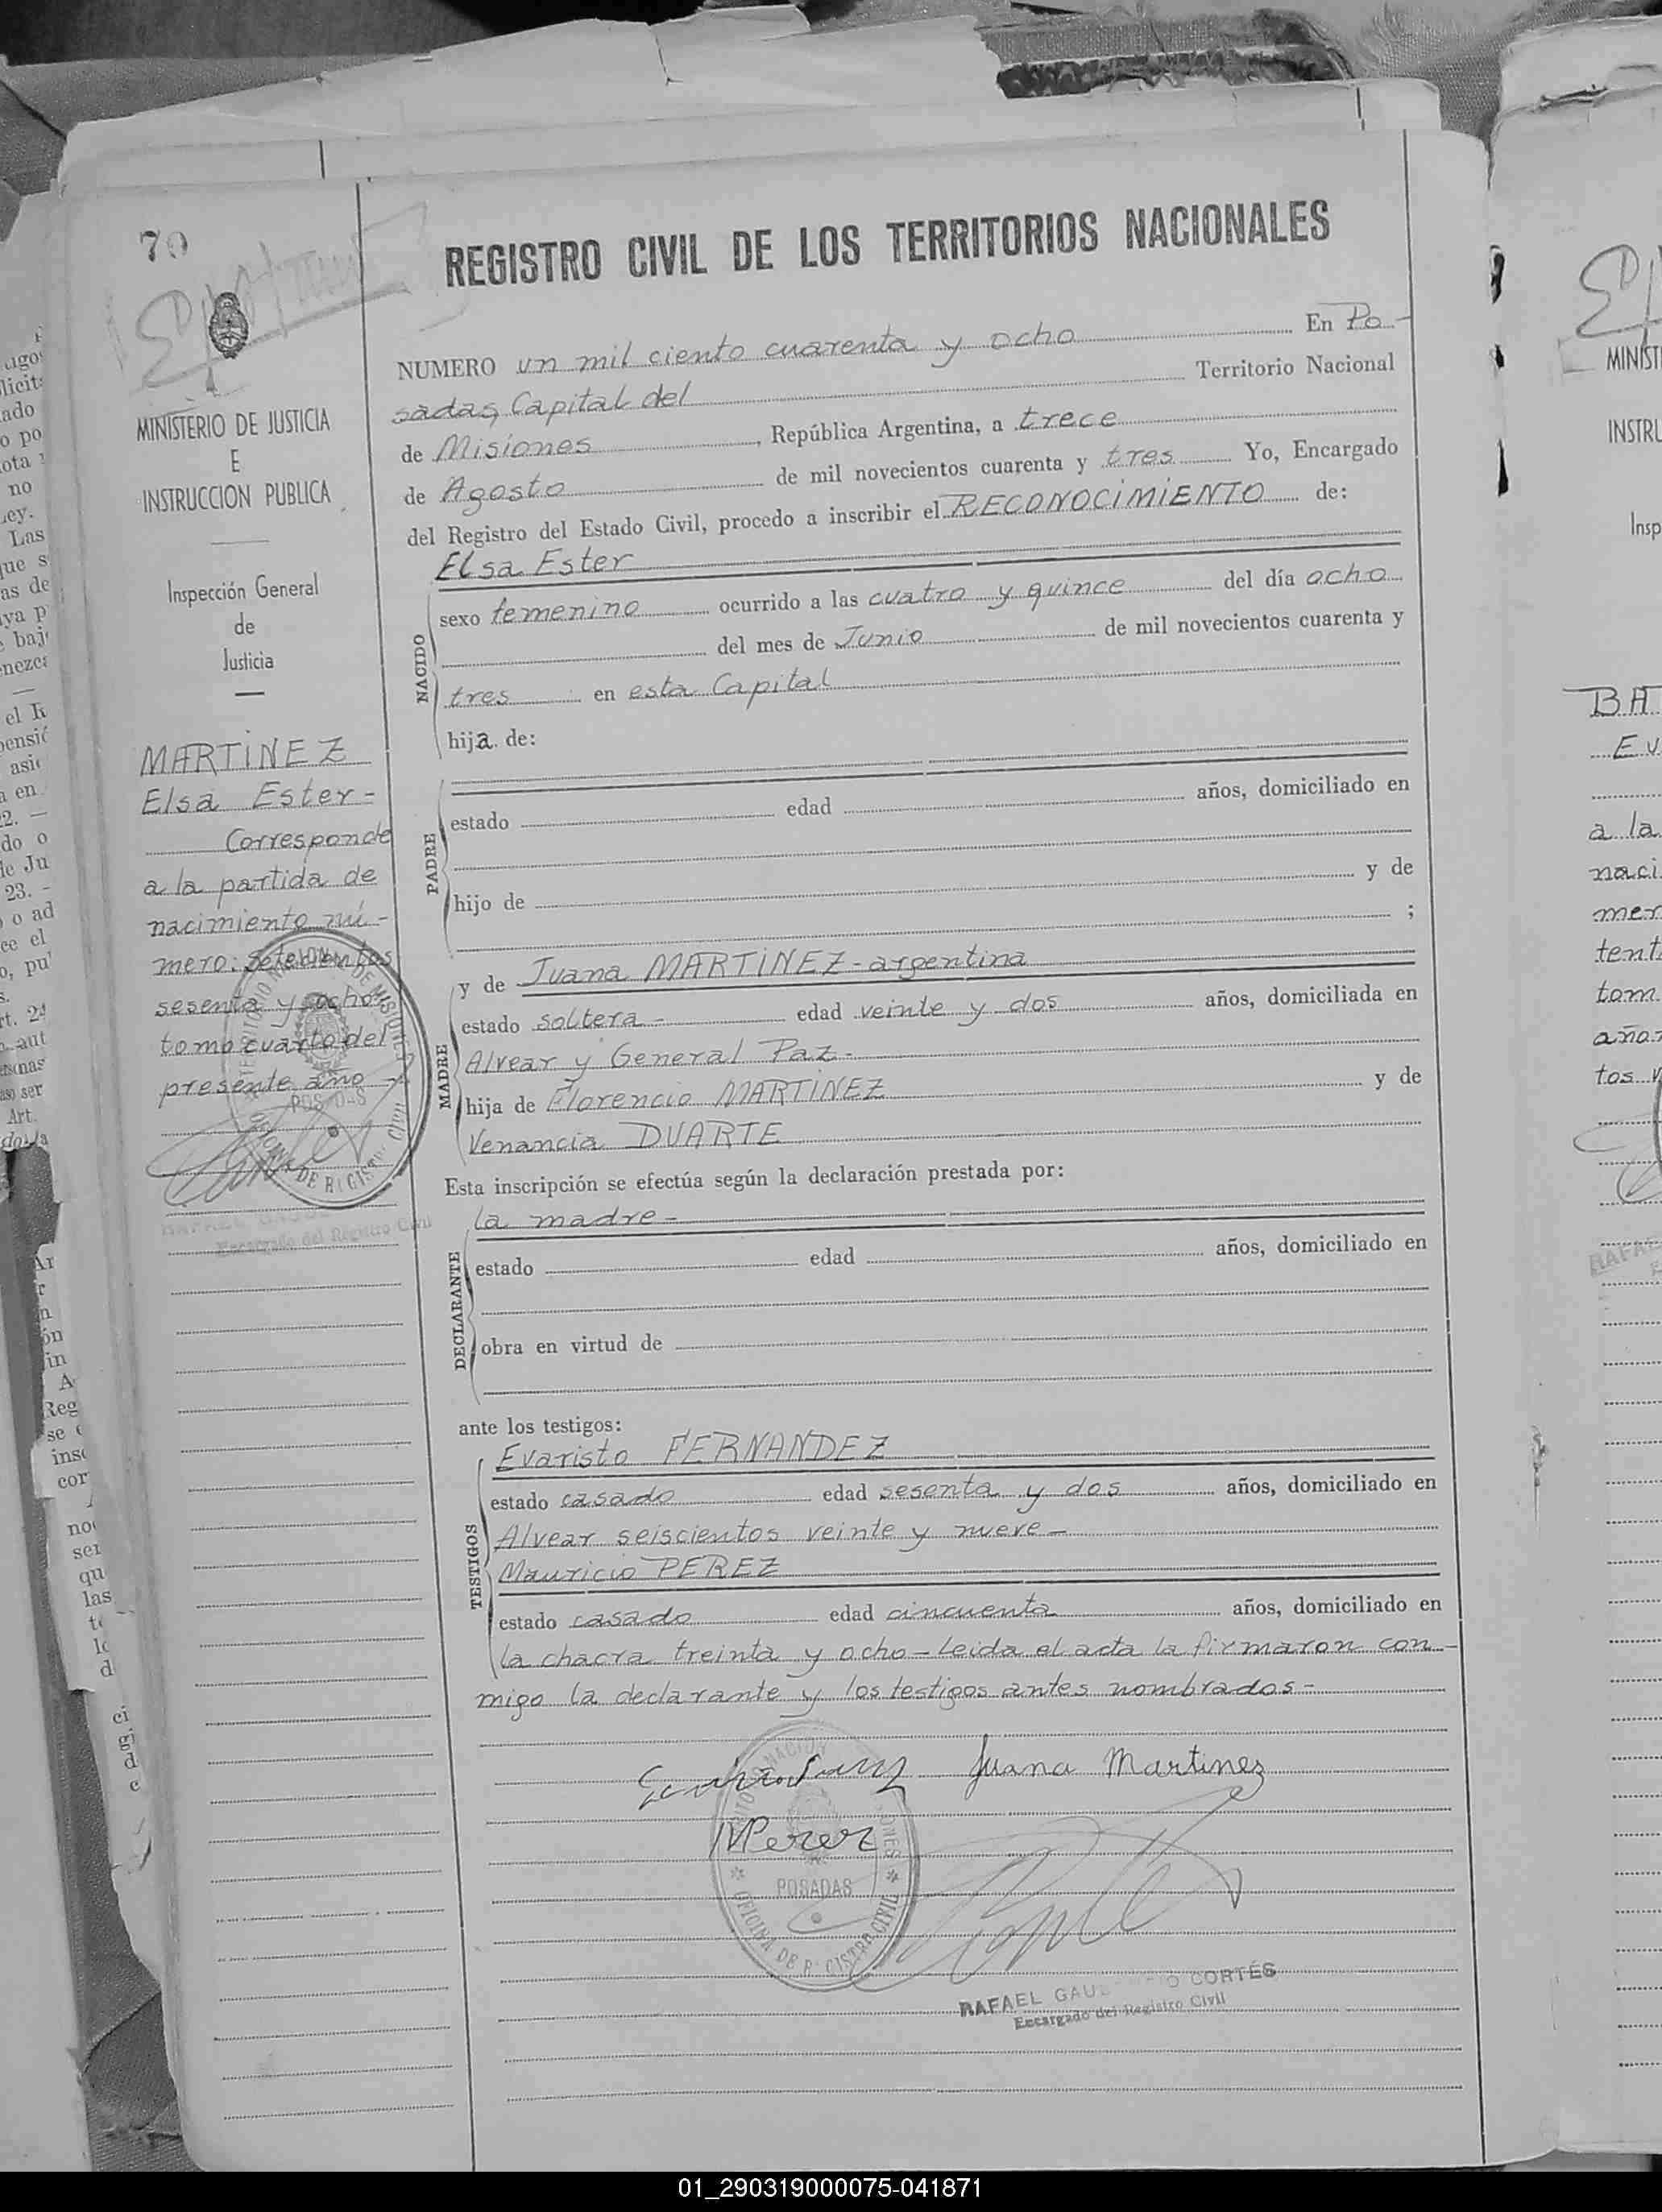 70
REGISTRO CIVIL DE LOS TERRITORIOS NACIONALES
MINISTERIO DE JUSTICIA
E
INSTRUCCION PUBLICA
Inspección General
de
Justicia
MARTINEZ
Elsa Ester =
Corresponde
a la partida de
nacimiento nú-
mero: setecientos
sesenta y ocho
tomo cuarto del
presente año
POSADAS
Encargado del Registro Civil
NUMERO un mil ciento cuarenta y ocho En Po-
sadas, Capital del Territorio Nacional
de Misiones, República Argentina, a trece
de Agosto de mil novecientos cuarenta y tres Yo, Encargado
del Registro del Estado Civil, procedo a inscribir el RECONOCIMIENTO de:
Elsa Ester
NACIDO
sexo femenino ocurrido a las cuatro y quince del día ocho
del mes de Junio de mil novecientos cuarenta y
tres en esta Capital
hija de:
PADRE
estado edad años, domiciliado en
hijo de y de
;
MADRE
y de Juana MARTINEZ - argentina
estado soltera - edad veinte y dos años, domiciliada en
Alvear y General Paz -
hija de Florencio MARTINEZ y de
Venancia DUARTE
Esta inscripción se efectúa según la declaración prestada por:
DECLARANTE
la madre -
estado edad años, domiciliado en
obra en virtud de
ante los testigos:
TESTIGOS
Evaristo FERNANDEZ
estado casado edad sesenta y dos años, domiciliado en
Alvear seiscientos veinte y nueve -
Mauricio PEREZ
estado casado edad cincuenta años, domiciliado en
la chacra treinta y ocho - Leida el acta la firmaron con-
migo la declarante y los testigos antes nombrados -
Juana Martinez
MPerez
POSADAS
OFICINA DE REGISTRO CIVIL
RAFAEL CORTÉS
Encargado del Registro Civil
01_290319000075-041871